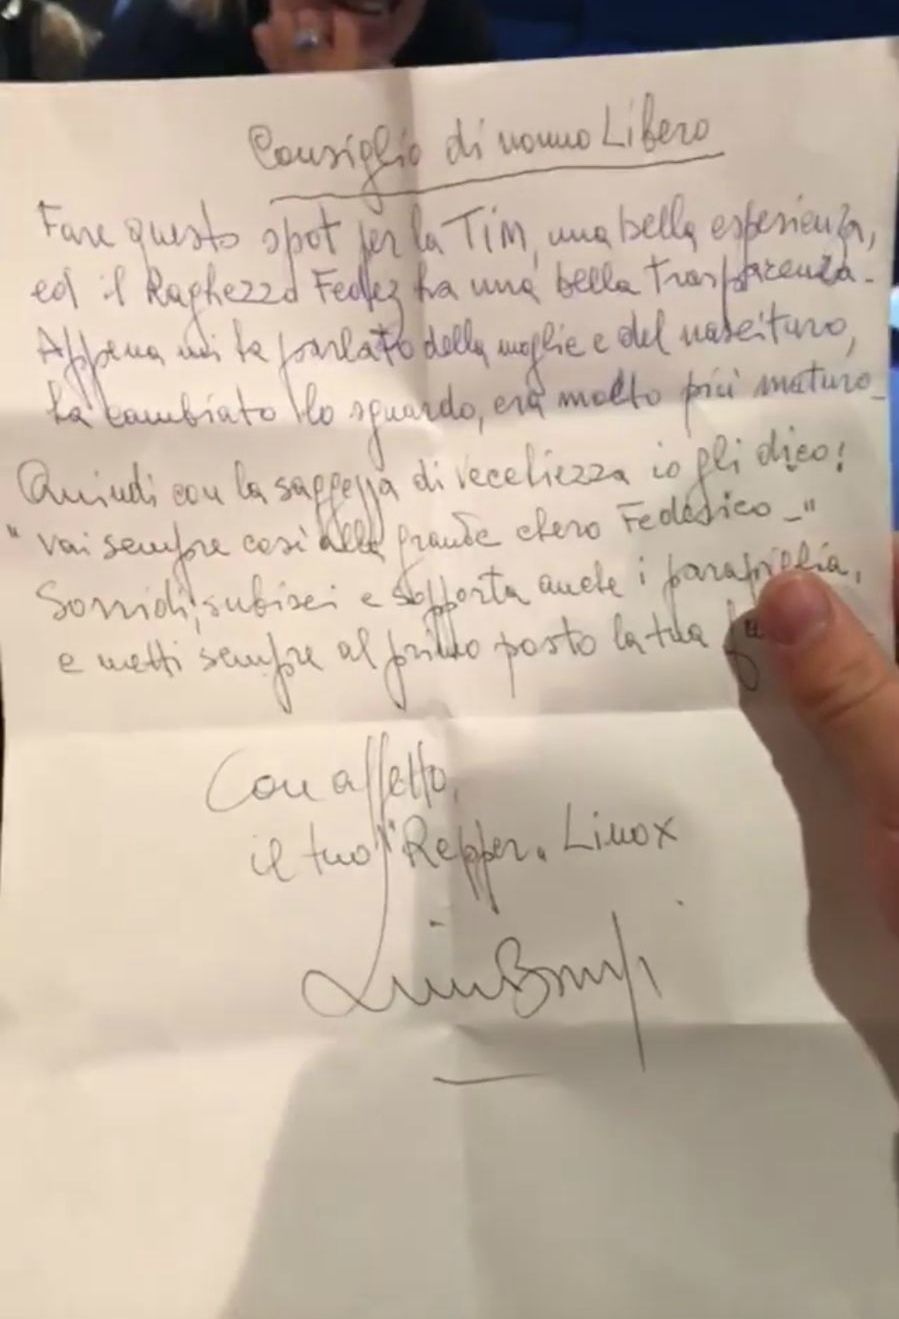 Consiglio di nonno Libero
Fare questo spot per la TIM, una bella esperienza,
ed il Raghezzo Fedez ha una bella trasparenza.
Appena mi ha parlato della moglie e del nascituro,
ha cambiato lo sguardo, era molto più maturo.
Quindi con la saggezza di vecchiezza io gli dico!
"Vai sempre così alla grande chero Federico..."
Sorridi, subisci e sopporta anche i parapiglia,
e metti sempre al primo posto la tua
Con affetto,
il tuo "Repper. Linox
Lino Banfi